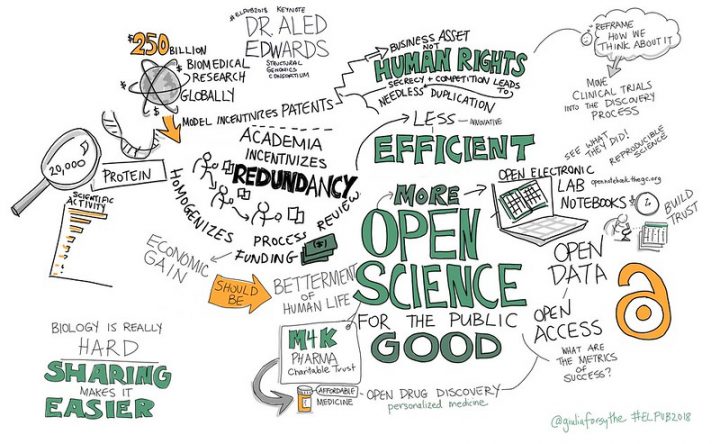 #ELPUB2018 KEYNOTE
DR. ALED
EDWARDS
STRUCTURAL
GENOMICS
CONSORTIUM
$250 BILLION
BIOMEDICAL
RESEARCH
GLOBALLY
MODEL INCENTIVIZES PATENTS
BUSINESS ASSET
NOT
HUMAN RIGHTS
SECRECY + COMPETITION LEADS
TO
NEEDLESS DUPLICATION
LESS INNOVATIVE
EFFICIENT
REFRAME
HOW WE
THINK ABOUT IT
MOVE
CLINICAL TRIALS
INTO THE DISCOVERY
PROCESS
20,000
PROTEIN
SCIENTIFIC
ACTIVITY
ACADEMIA
INCENTIVIZES
REDUNDANCY
HOMOGENIZES
PROCESS REVIEW
FUNDING
($)
ECONOMIC
GAIN
SHOULD
BE
BETTERMENT
OF
HUMAN LIFE
MORE
OPEN
SCIENCE
FOR THE PUBLIC
GOOD
SEE WHAT
THEY DID!
REPRODUCIBLE
SCIENCE
OPEN ELECTRONIC
LAB
NOTEBOOKS
opennotebook.thesgc.org
BUILD
TRUST
OPEN
DATA
OPEN
ACCESS
WHAT ARE
THE METRICS
OF
SUCCESS?
BIOLOGY IS REALLY
HARD
SHARING
MAKES IT
EASIER
M4K
PHARMA
Charitable Trust
AFFORDABLE
MEDICINE
OPEN DRUG DISCOVERY
personalized medicine
@giuliaforsythe #ELPUB2018